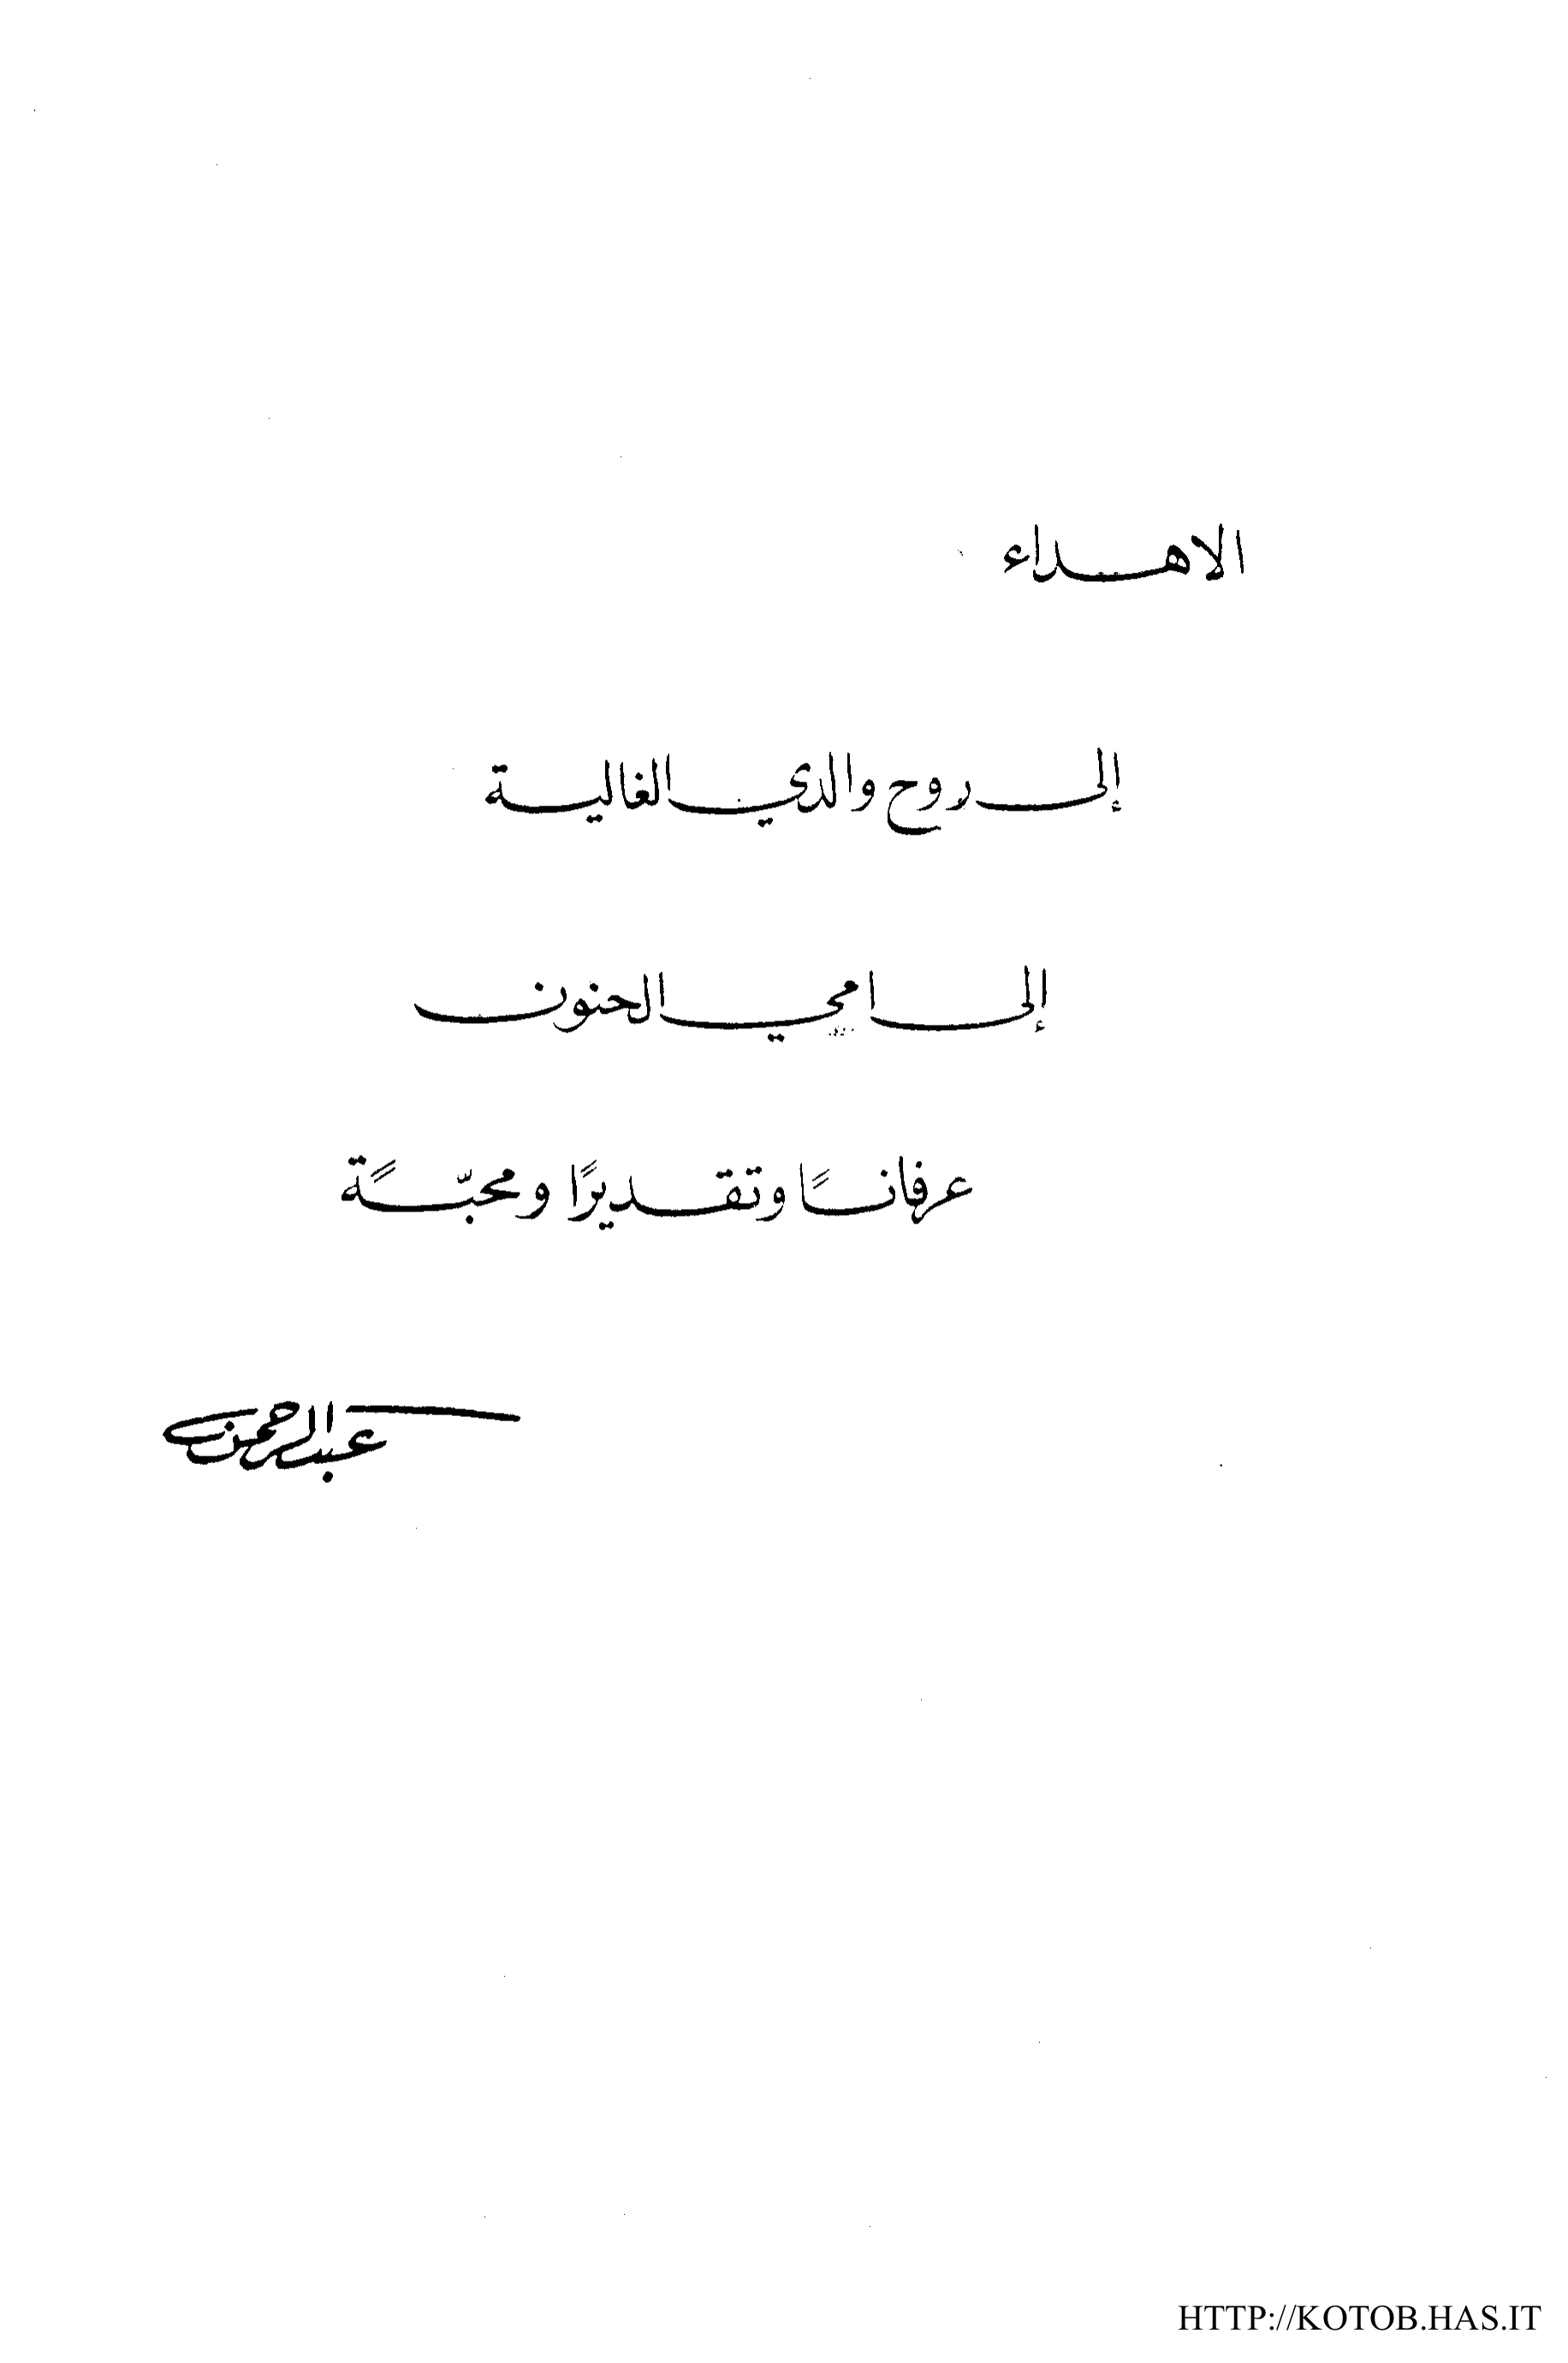 الاهداء
إلى روح والدي الغالية
إلى امي الحنون
عرفانًا وتقديرًا ومحبّةً
عبد الرحمن
HTTP://KOTOB.HAS.IT